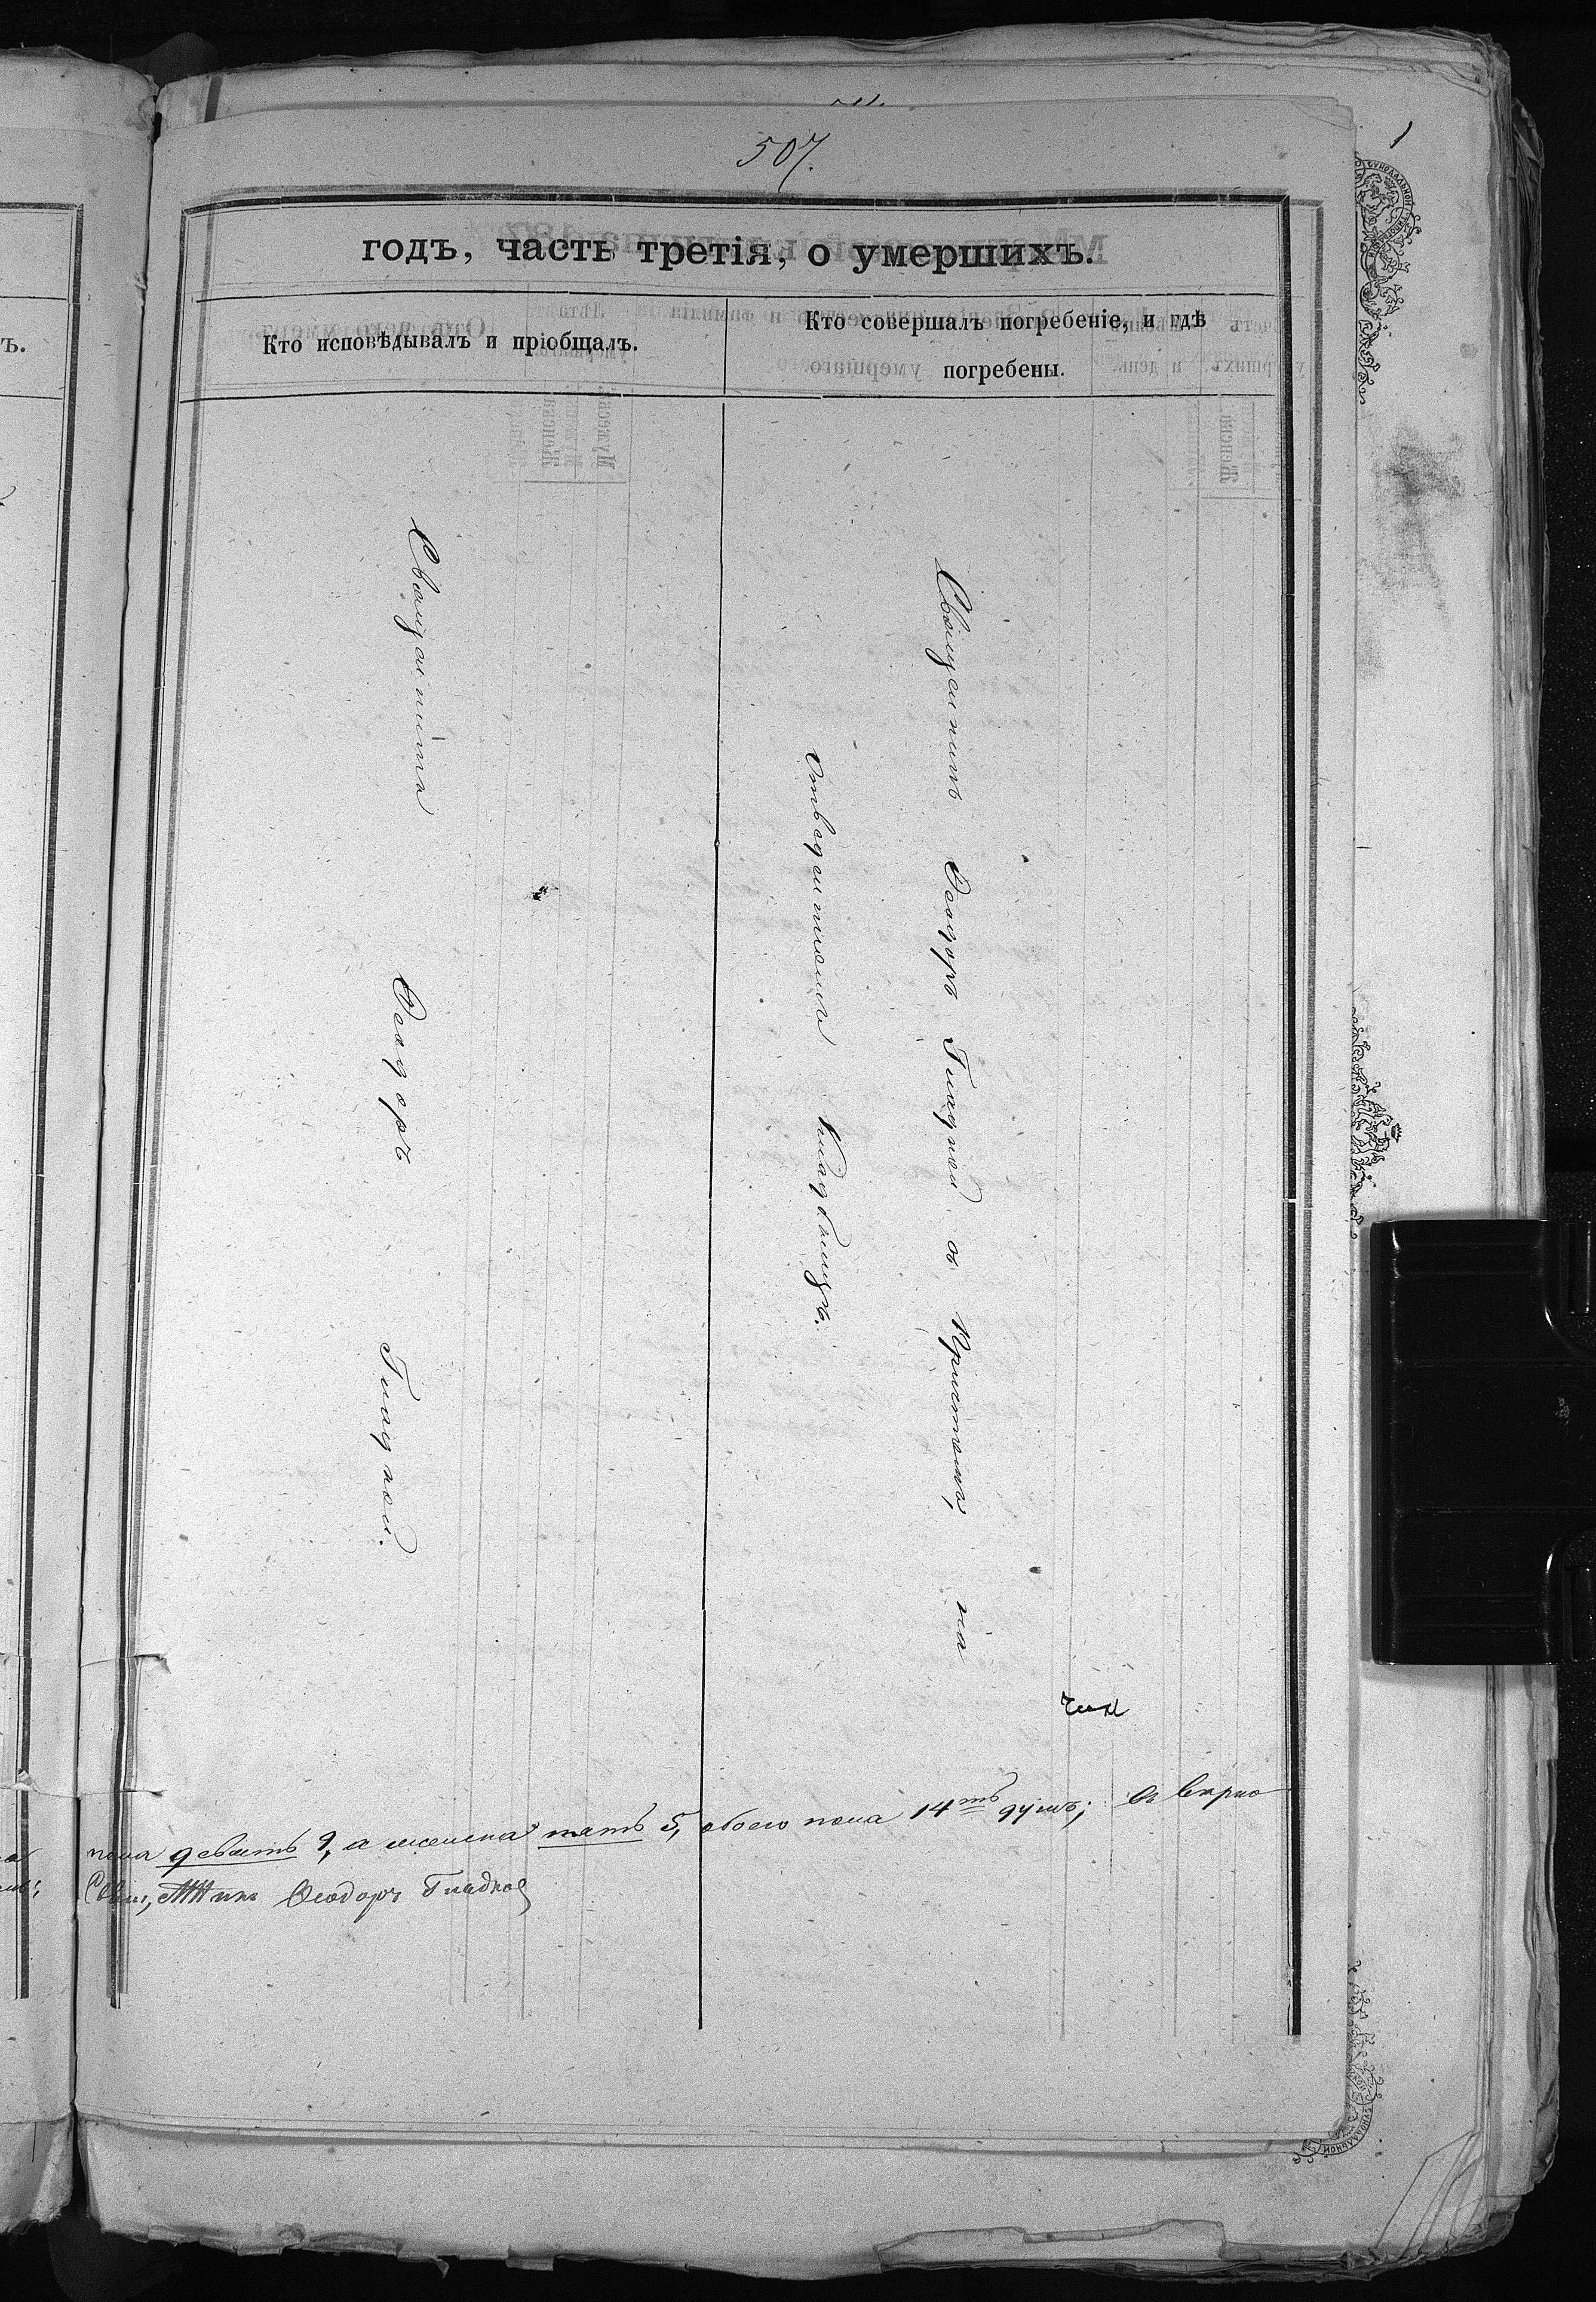 507.
годъ, часть третія, о умершихъ.
Кто исповѣдывалъ и пріобщалъ.
Кто совершалъ погребеніе, и гдѣ
погребены.
Священникъ Ѳеодоръ Гладкой.
Священникъ Ѳеодоръ Гладкой съ Причтомъ, на
отведенномъ кладбищѣ.
пола девять 9, а женска пять 5, обоего пола 14ть душъ;
Ѳеодоръ Гладкой